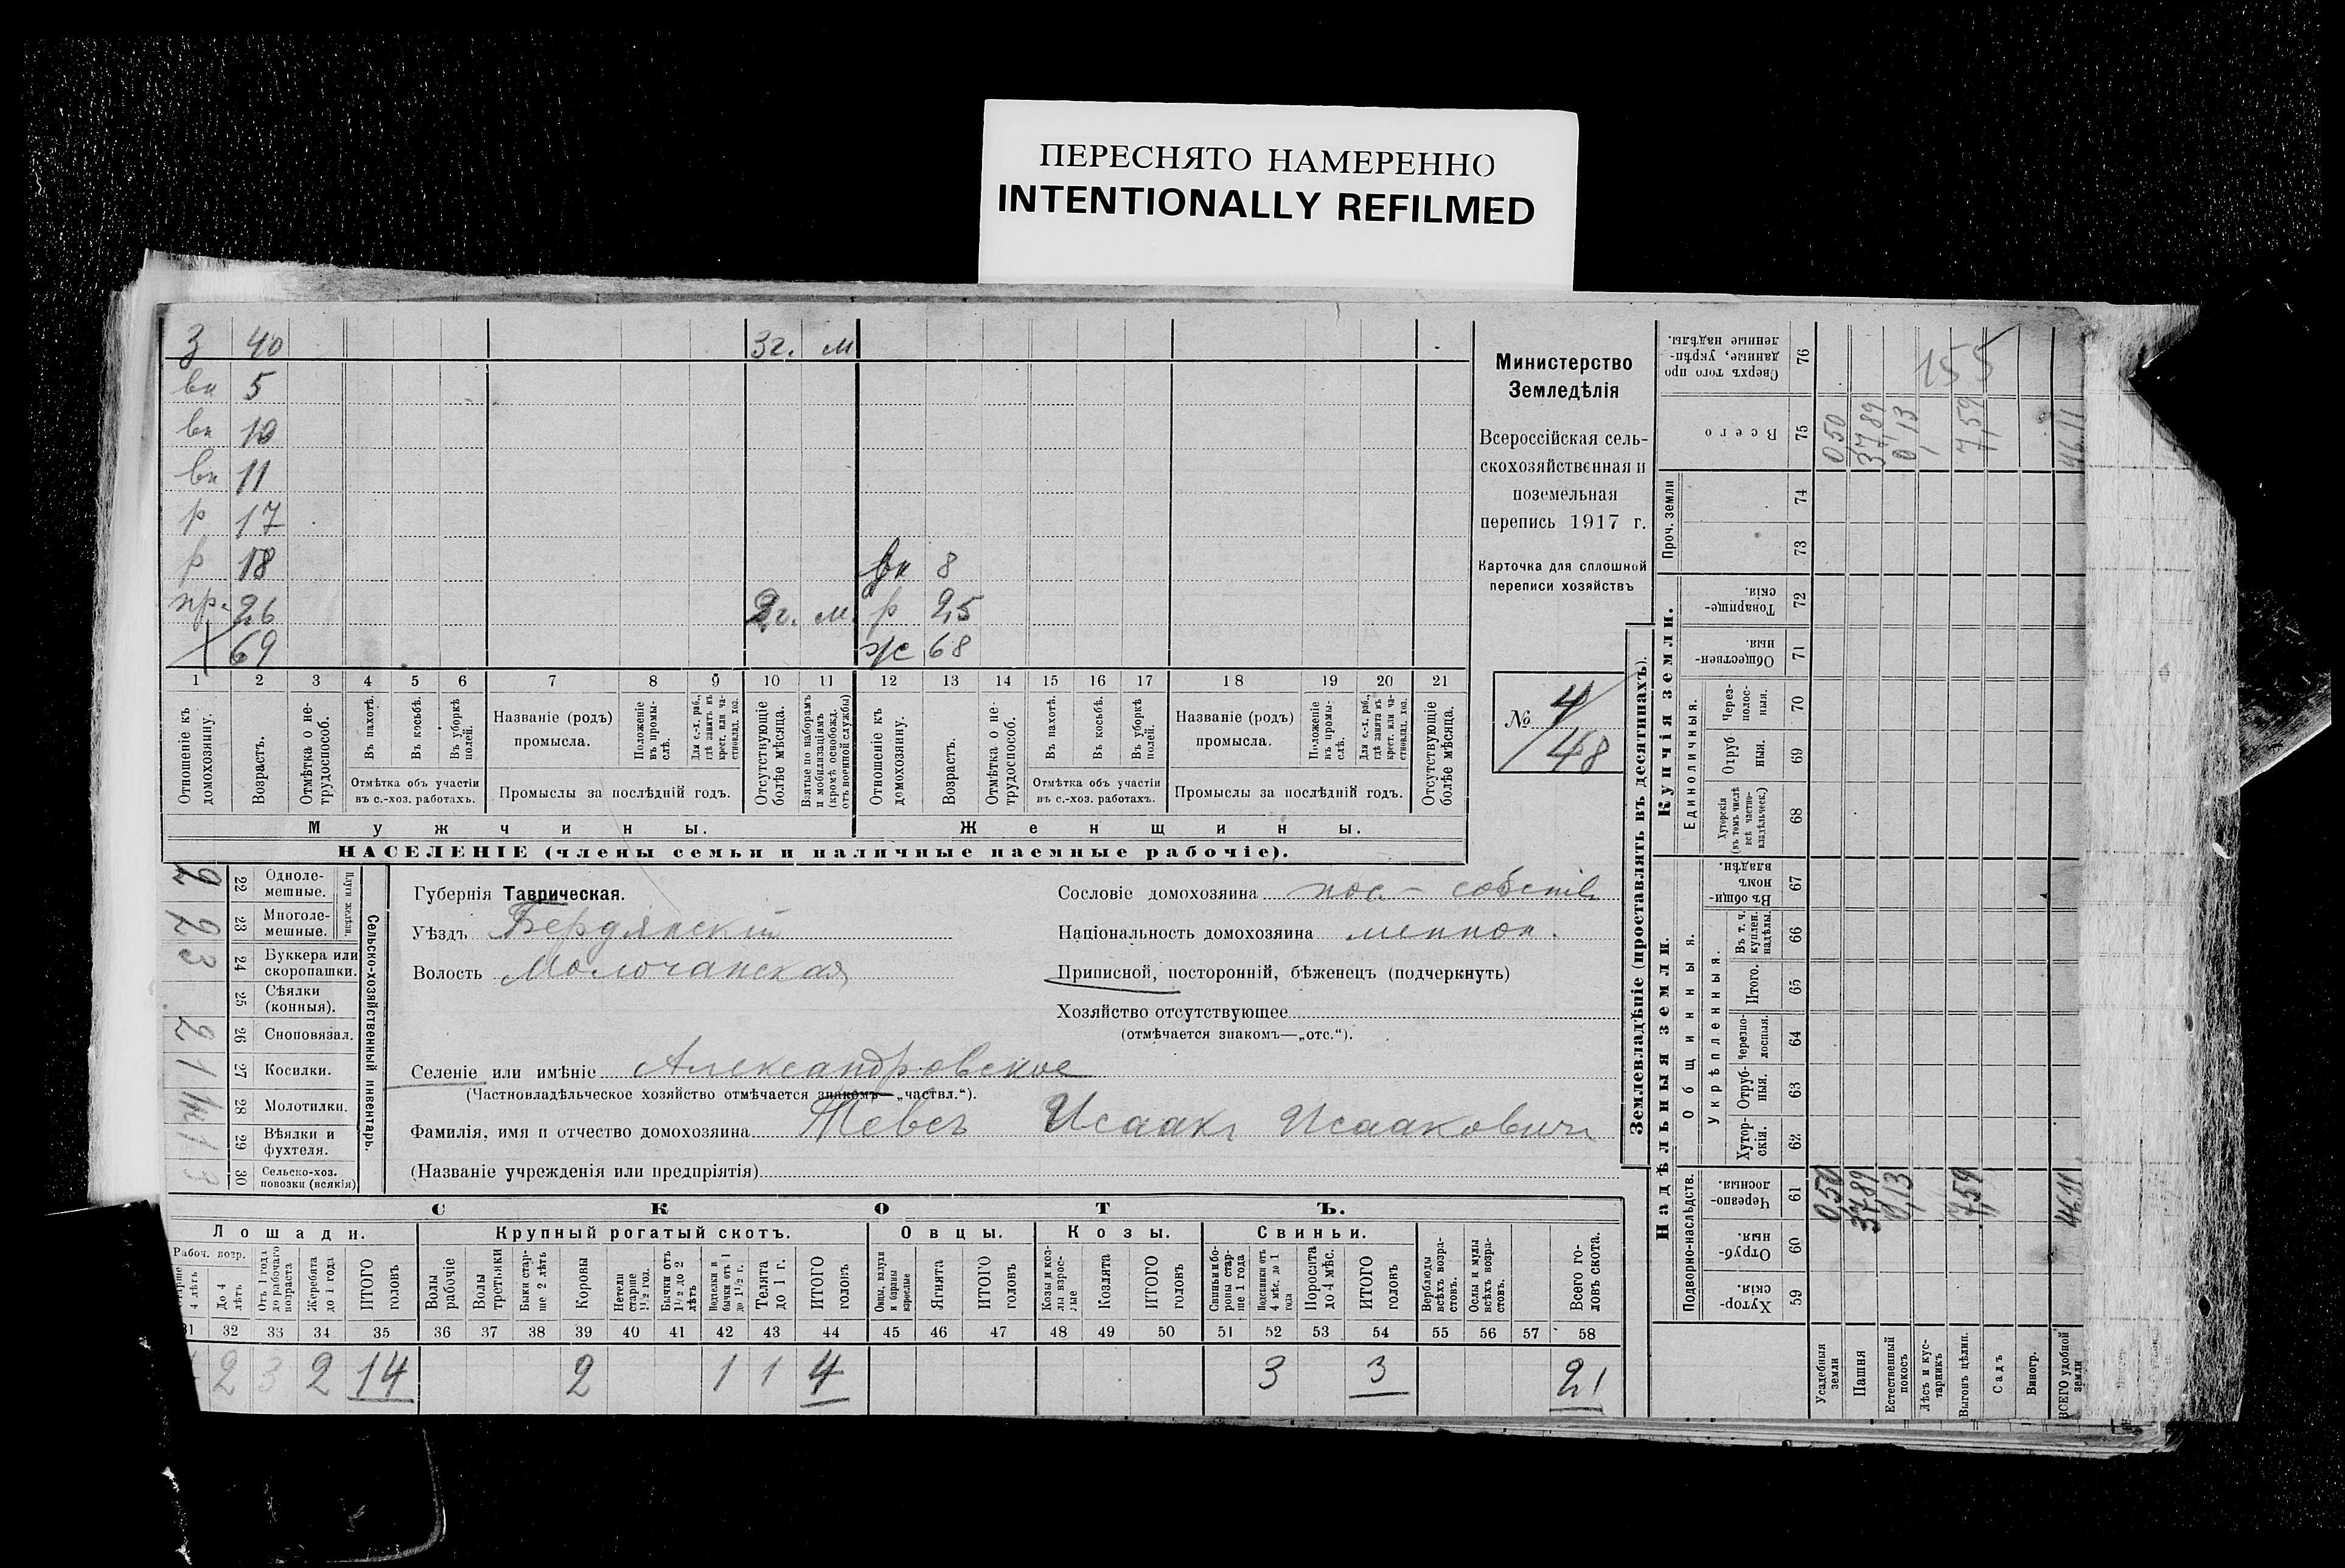 ПЕРЕСНЯТО НАМЕРЕННО
INTENTIONALLY REFILMED
з 40 3г. м
вн 5
вн 10
вн 11
р 17
р 18 вн 8
пр. 26 2г. м. р 25
х 69 ж 68
1 2 3 4 5 6 7 8 9 10 11 12 13 14 15 16 17 18 19 20 21
Отношеніе къ домохозяину.
Возрастъ.
Отмѣтка о нетрудоспособ.
Въ пахотѣ.
Въ косьбѣ.
Въ уборкѣ полей.
Отмѣтка объ участіи
въ с.-хоз. работахъ.
Названіе (родъ)
промысла.
Положеніе въ промыслѣ.
Для с.-х. раб., гдѣ занятъ въ крест. или частновлад. хоз.
Промыслы за послѣдній годъ.
Отсутствующіе болѣе мѣсяца.
Взятые по наборамъ и мобилизаціямъ (кромѣ освобожд. отъ военной службы)
Отношеніе къ домохозяину.
Возрастъ.
Отмѣтка о нетрудоспособ.
Въ пахотѣ.
Въ косьбѣ.
Въ уборкѣ полей.
Отмѣтка объ участіи
въ с.-хоз. работахъ.
Названіе (родъ)
промысла.
Положеніе въ промыслѣ.
Для с.-х. раб., гдѣ занята въ крест. или частновлад. хоз.
Промыслы за послѣдній годъ.
Отсутствующіе болѣе мѣсяца.
Мужчины. Женщины.
НАСЕЛЕНІЕ (члены семьи и наличные наемные рабочіе).
Министерство
Земледѣлія
Всероссійская сель-
скохозяйственная и
поземельная
перепись 1917 г.
Карточка для сплошной
переписи хозяйствъ
№ 4
48
2 22 Однолемешные.
2 23 Многолемешные.
Плуги желѣзн.
3 24 Буккера или скоропашки.
25 Сѣялки (конныя).
2 26 Сноповязал.
1 27 Косилки.
28 Молотилки.
1 29 Вѣялки и фухтеля.
3 30 Сельско-хоз. повозки (всякія)
Сельско-хозяйственный инвентарь.
Губернія Таврическая.
Уѣздъ Бердянскій
Волость Молочанская
Сословіе домохозяина пос. - собств
Національность домохозяина меннон.
Приписной, посторонній, бѣженецъ (подчеркнуть)
Хозяйство отсутствующее
(отмѣчается знакомъ—„отс.“).
Селеніе или имѣніе Александровское
(Частновладѣльческое хозяйство отмѣчается знакомъ—„частвл.“).
Фамилія, имя и отчество домохозяина Тевсъ Исаакъ Исааковичъ
(Названіе учрежденія или предпріятія)
СКОТЪ.
Лошади. Крупный рогатый скотъ. Овцы. Козы. Свиньи.
Рабоч. возр.
4 лѣтъ
До 4 лѣтъ
Отъ 1 года до рабочаго возраста
Жеребята до 1 года
ИТОГО головъ
Волы рабочіе
Волы третьяки
Быки старше 2 лѣтъ
Коровы
Нетели старше 1½ год.
Бычки отъ 1½ до 2 лѣтъ
Нетелки и бычки отъ 1 до 1½ г.
Телята до 1 г.
ИТОГО головъ
Овцы, валухи и бараны взрослые
Ягнята
ИТОГО головъ
Козы и козлы взрослые
Козлята
ИТОГО головъ
Свиньи и боровы старше 1 года
Подсвинки отъ 4 мѣс. до 1 года
Поросята до 4 мѣс.
ИТОГО головъ
Верблюды всѣхъ возрастовъ.
Ослы и мулы всѣхъ возрастовъ.
Всего головъ скота.
31 32 33 34 35 36 37 38 39 40 41 42 43 44 45 46 47 48 49 50 51 52 53 54 55 56 57 58
2 3 2 14 2 1 1 4 3 3 21
Землевладѣніе (проставлять въ десятинахъ).
Надѣльныя земли. Купчія земли.
Подворно-наслѣдств.
Общинныя.
Укрѣпленныя.
Единоличныя.
Проч. земли
59 Хуторскія.
60 Отрубныя.
61 Черезполосныя.
62 Хуторскія.
63 Отрубныя.
64 Черезполосныя.
65 Итого.
66 Въ т. ч. куплен. надѣлы.
67 Въ общинномъ владѣн.
68 Хуторскія (въ томъ числѣ всѣ частновладѣльческ.)
69 Отрубныя.
70 Черезполосныя.
71 Общественныя.
72 Товарищескія.
73
74
75 Всего
76 Сверхъ того проданные, укрѣпленные надѣлы.
Усадебныя земли 0,50 0,50
Пашня 37,89 37,89
Естественный покосъ 0,13 0,13
Лѣсъ и кустарникъ
Выгонъ цѣлин. 7,59 7,59
Садъ
Виногр.
ВСЕГО удобной земли 46.11 46.11
155